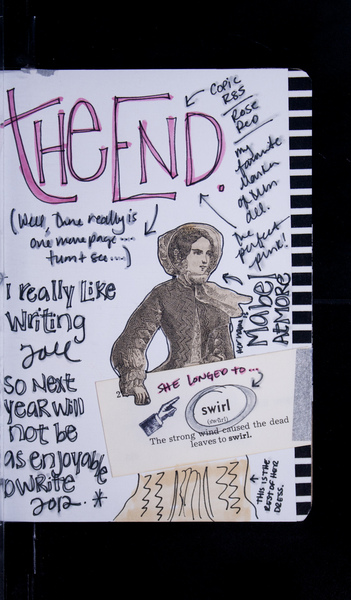 THE END.
← Copic
R85
Rose
Red
my
favorite
marker
of them
all.
The
perfect
pink!
(Well, there really is
one more page ....
turn + see ....)
i really like
writing
2011
so next
year will
not be
as enjoyable
to write
2012. *
her name is
Mabel
Atmore
She longed to ...
2
swirl
(swûrl)
The strong wind caused the dead
leaves to swirl.
This is the
rest of her
dress.